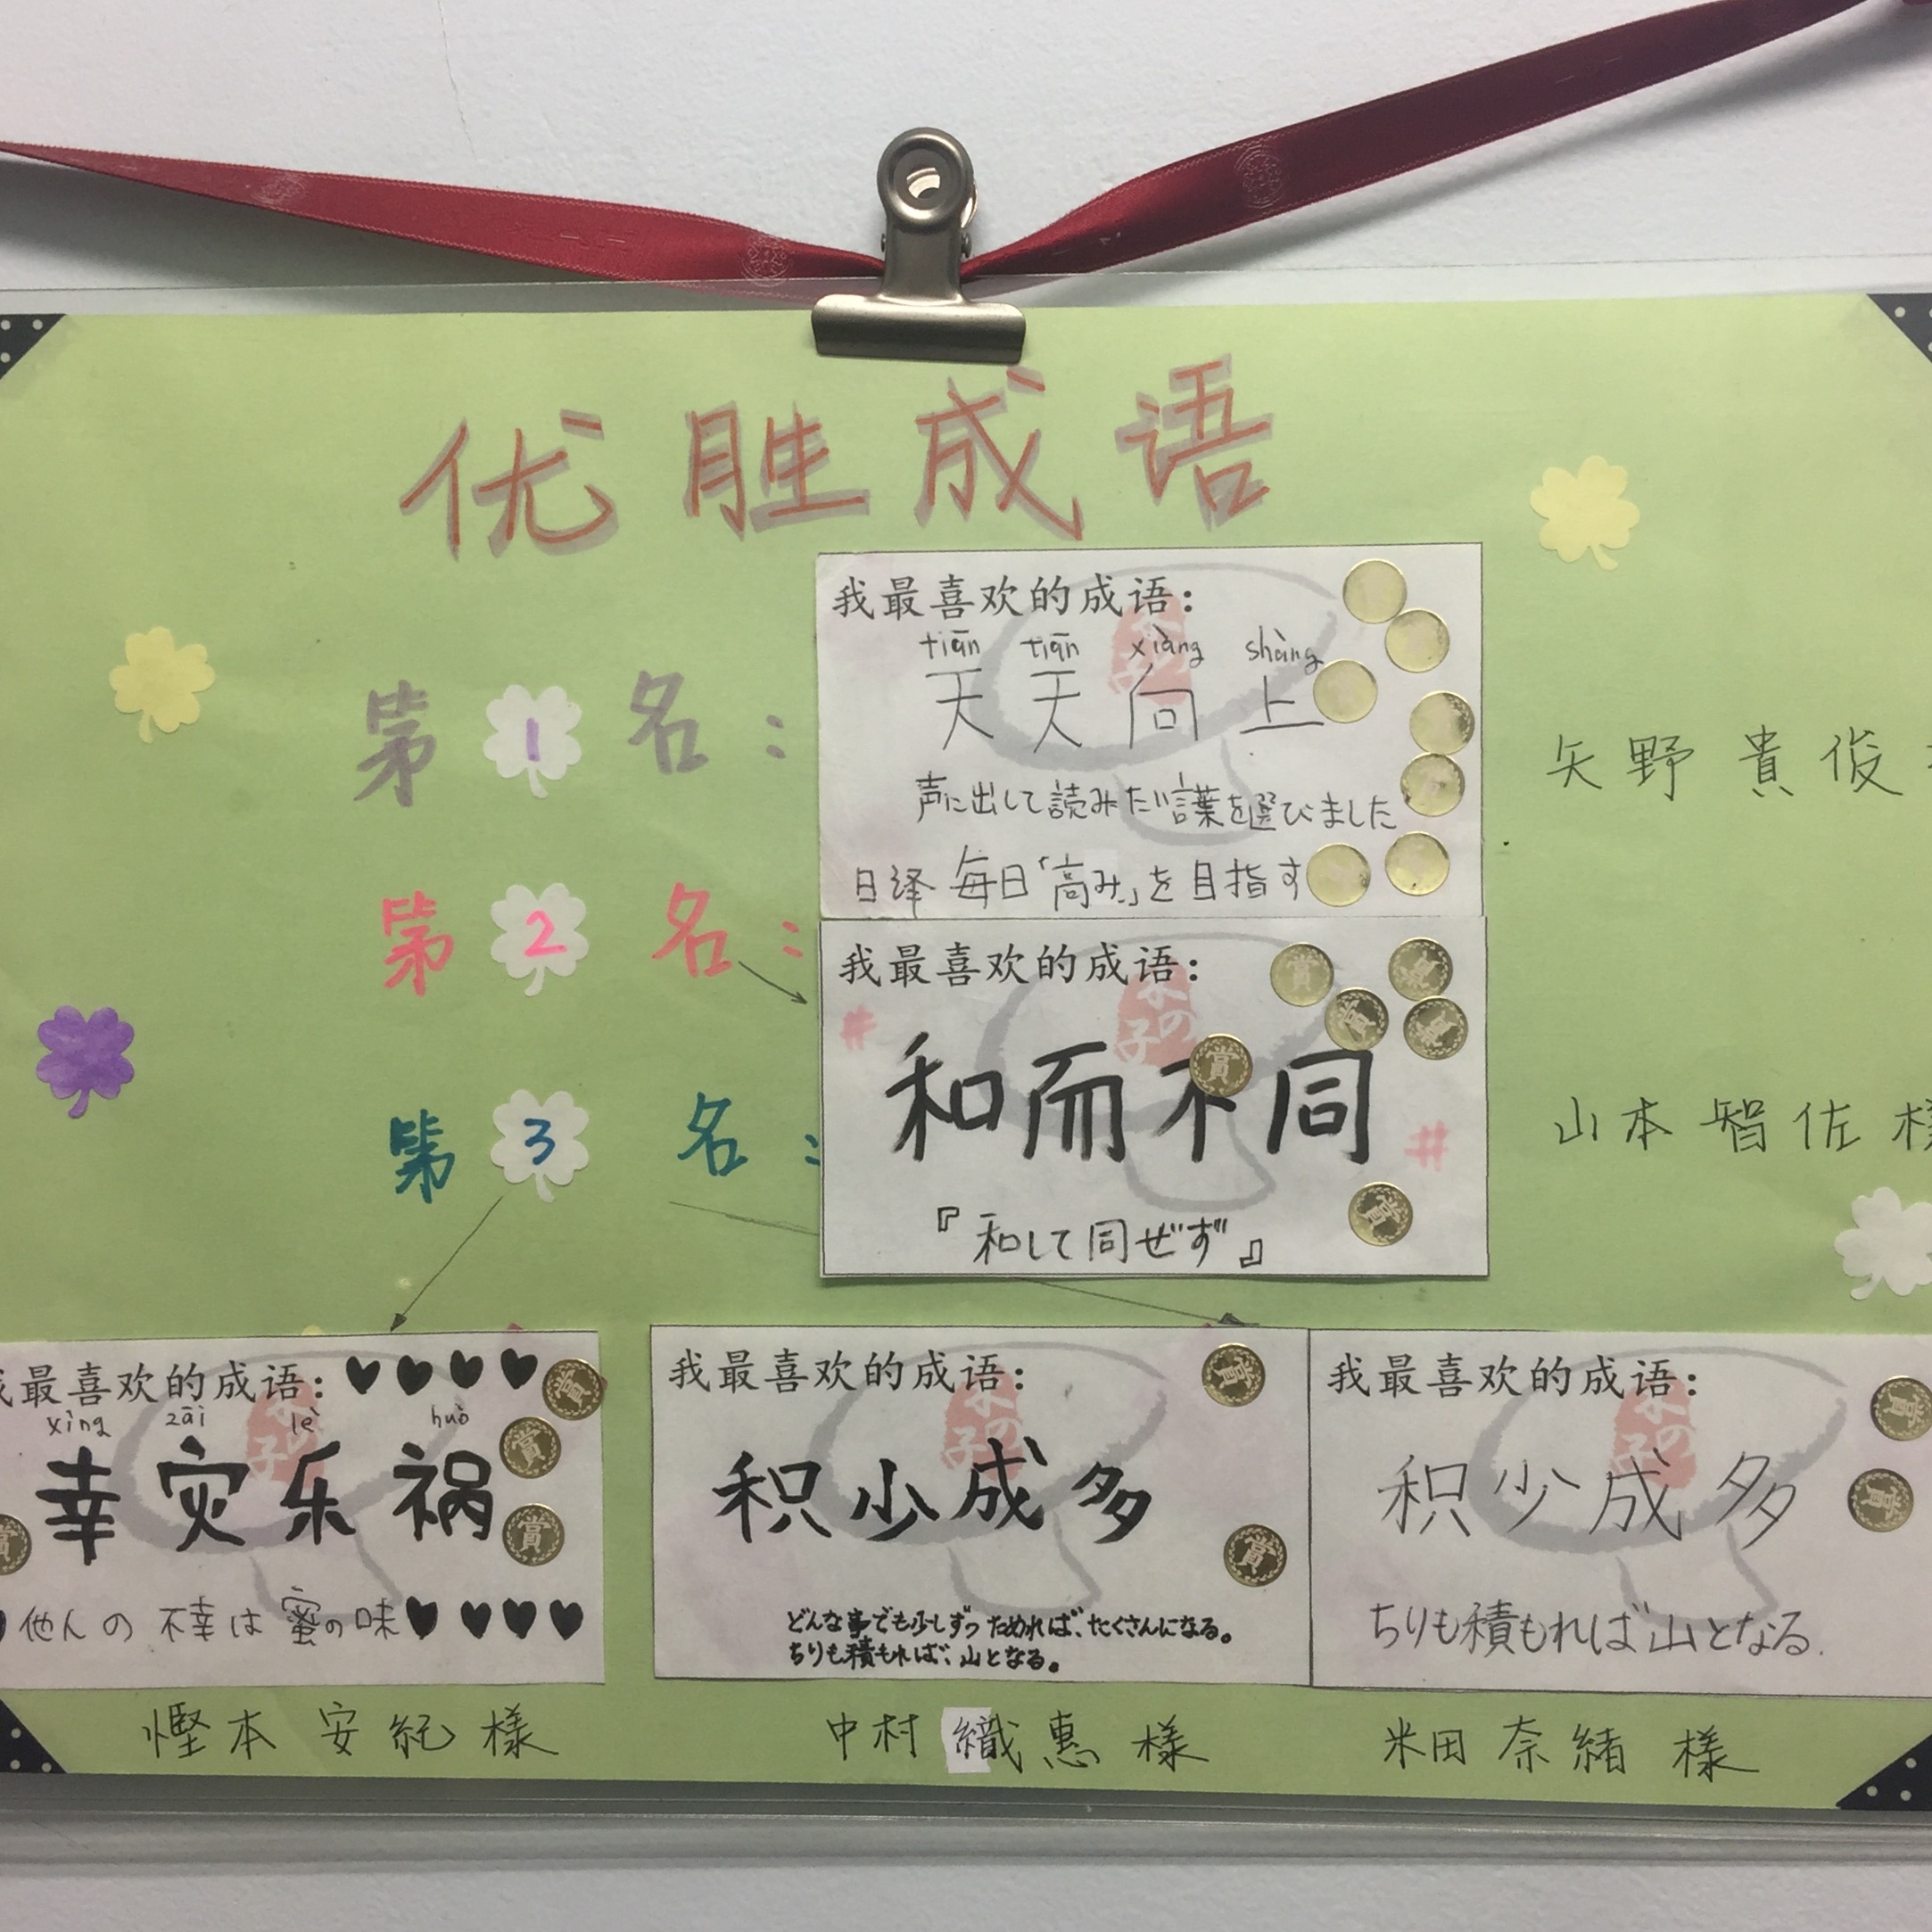 优胜成语
第1名:
我最喜欢的成语:
tiān tiān xiàng shàng
天天向上
声に出して読みたい言葉を選びました
日译 毎日「高み」を目指す
矢野貴俊
第2名:
我最喜欢的成语:
# 和而不同 #
『和して同ぜず』
山本智佐様
第3名:
我最喜欢的成语:
xìng zāi lè huò
幸灾乐祸
他人の不幸は蜜の味
樫本安紀様
我最喜欢的成语:
积少成多
どんな事でも少しずつためれば、たくさんになる。
ちりも積もれば、山となる。
中村織恵様
我最喜欢的成语:
积少成多
ちりも積もれば山となる.
米田奈緒様
賞
賞
賞
賞
賞
賞
賞
賞
賞
賞
賞
賞
賞
賞